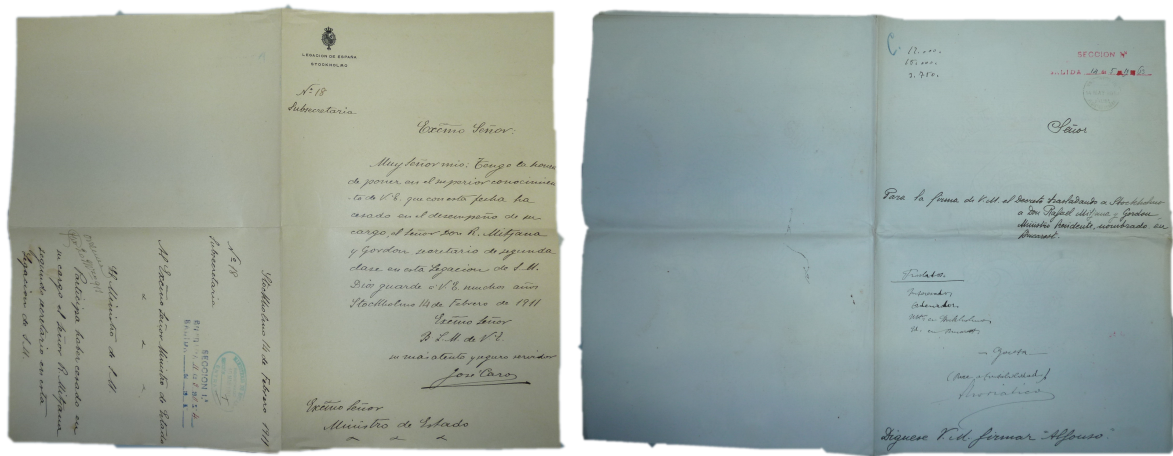 LEGACION DE ESPAÑA
STOCKHOLMO
Nº 18
Subsecretaria
Excmo Señor:
Muy Señor mio: Tengo la honra
de poner en el superior conocimien
to de V. E. que con esta fecha ha
cesado en el desempeño de su
cargo, el señor Don R. Mitjana
y Gordon secretario de segunda
clase en esta Legacion de S. M.
Dios guarde a V. E. muchos años
Stockholmo 14 de Febrero de 1911
Excmo Señor
B. L. M. de V. E.
su mas atento y seguro servidor
José Caro
Excmo Señor
Ministro de Estado
Stockholmo 14 de Febrero 1911
Nº 18
Subsecretaria
Al Excmo Señor Ministro de Estado
El Ministro de S. M.
Participa haber cesado en
su cargo el señor R. Mitjana
segundo secretario en esta
Legacion de S. M.
SECCION 1ª
C
12.000.
3.750.
SECCION
Señor
Para la firma de V. M. el Decreto trasladando a Stockholmo
a Don Rafael Mitjana y Gordon
Ministro Residente, nombrado en
Bucarest.
Traslados
Gaceta
Dígnese V. M. firmar "Alfonso".